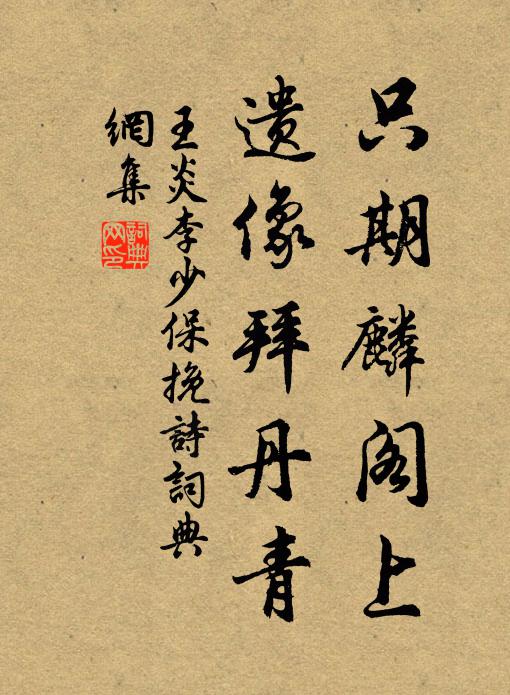 只期麟阁上
遗像拜丹青
王炎李少保挽詩詞典
網集
詞典
网印